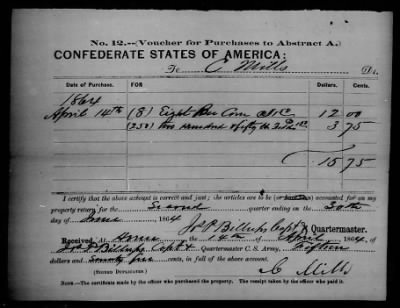 No. 12.--(Voucher for Purchases to Abstract A.)
CONFEDERATE STATES OF AMERICA:
To C Mills Dr.
Date of Purchase. FOR Dollars. Cents.
1864
April 14th (8) Eight Bu Corn 12 00
(250) two Hundred & fifty 3 75
15 75
I certify that the above account is correct and just; the articles to be (or ) accounted for on my
property return for the Second quarter ending on the 30th
day of June, 1864
Jos P Billups Capt & Quartermaster.
Received, At Home the 14th of April, 1864, of
Jos P Billups Capt & Quartermaster C. S. Army, Fifteen
dollars and Seventy five cents, in full of the above account.
(SIGNED DUPLICATES.) C Mills
NOTE.—The certificate made by the officer who purchased the property. The receipt obtained by the officer who paid it.